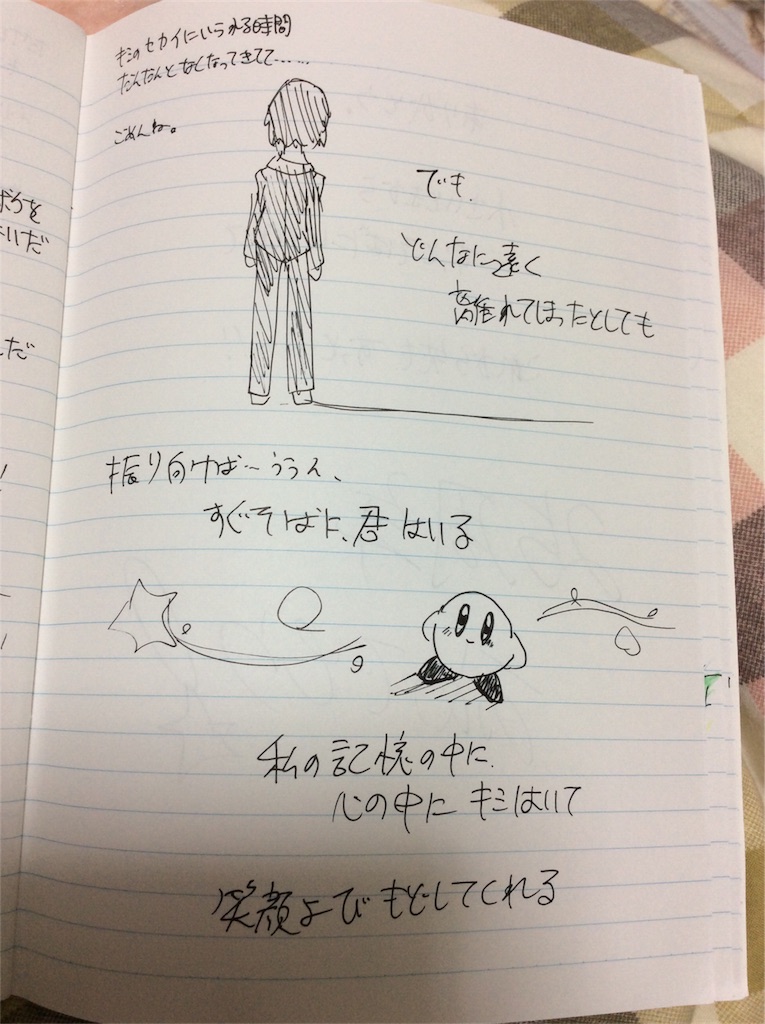 キミのセカイにいられる時間
だんだんとなくなってきてて……
ごめんね。
でも、
どんなに遠く
離れてしまったとしても
振り向けば…ううん、
すぐそばに、君はいる
私の記憶の中に
心の中に キミはいて
笑顔よびもどしてくれる